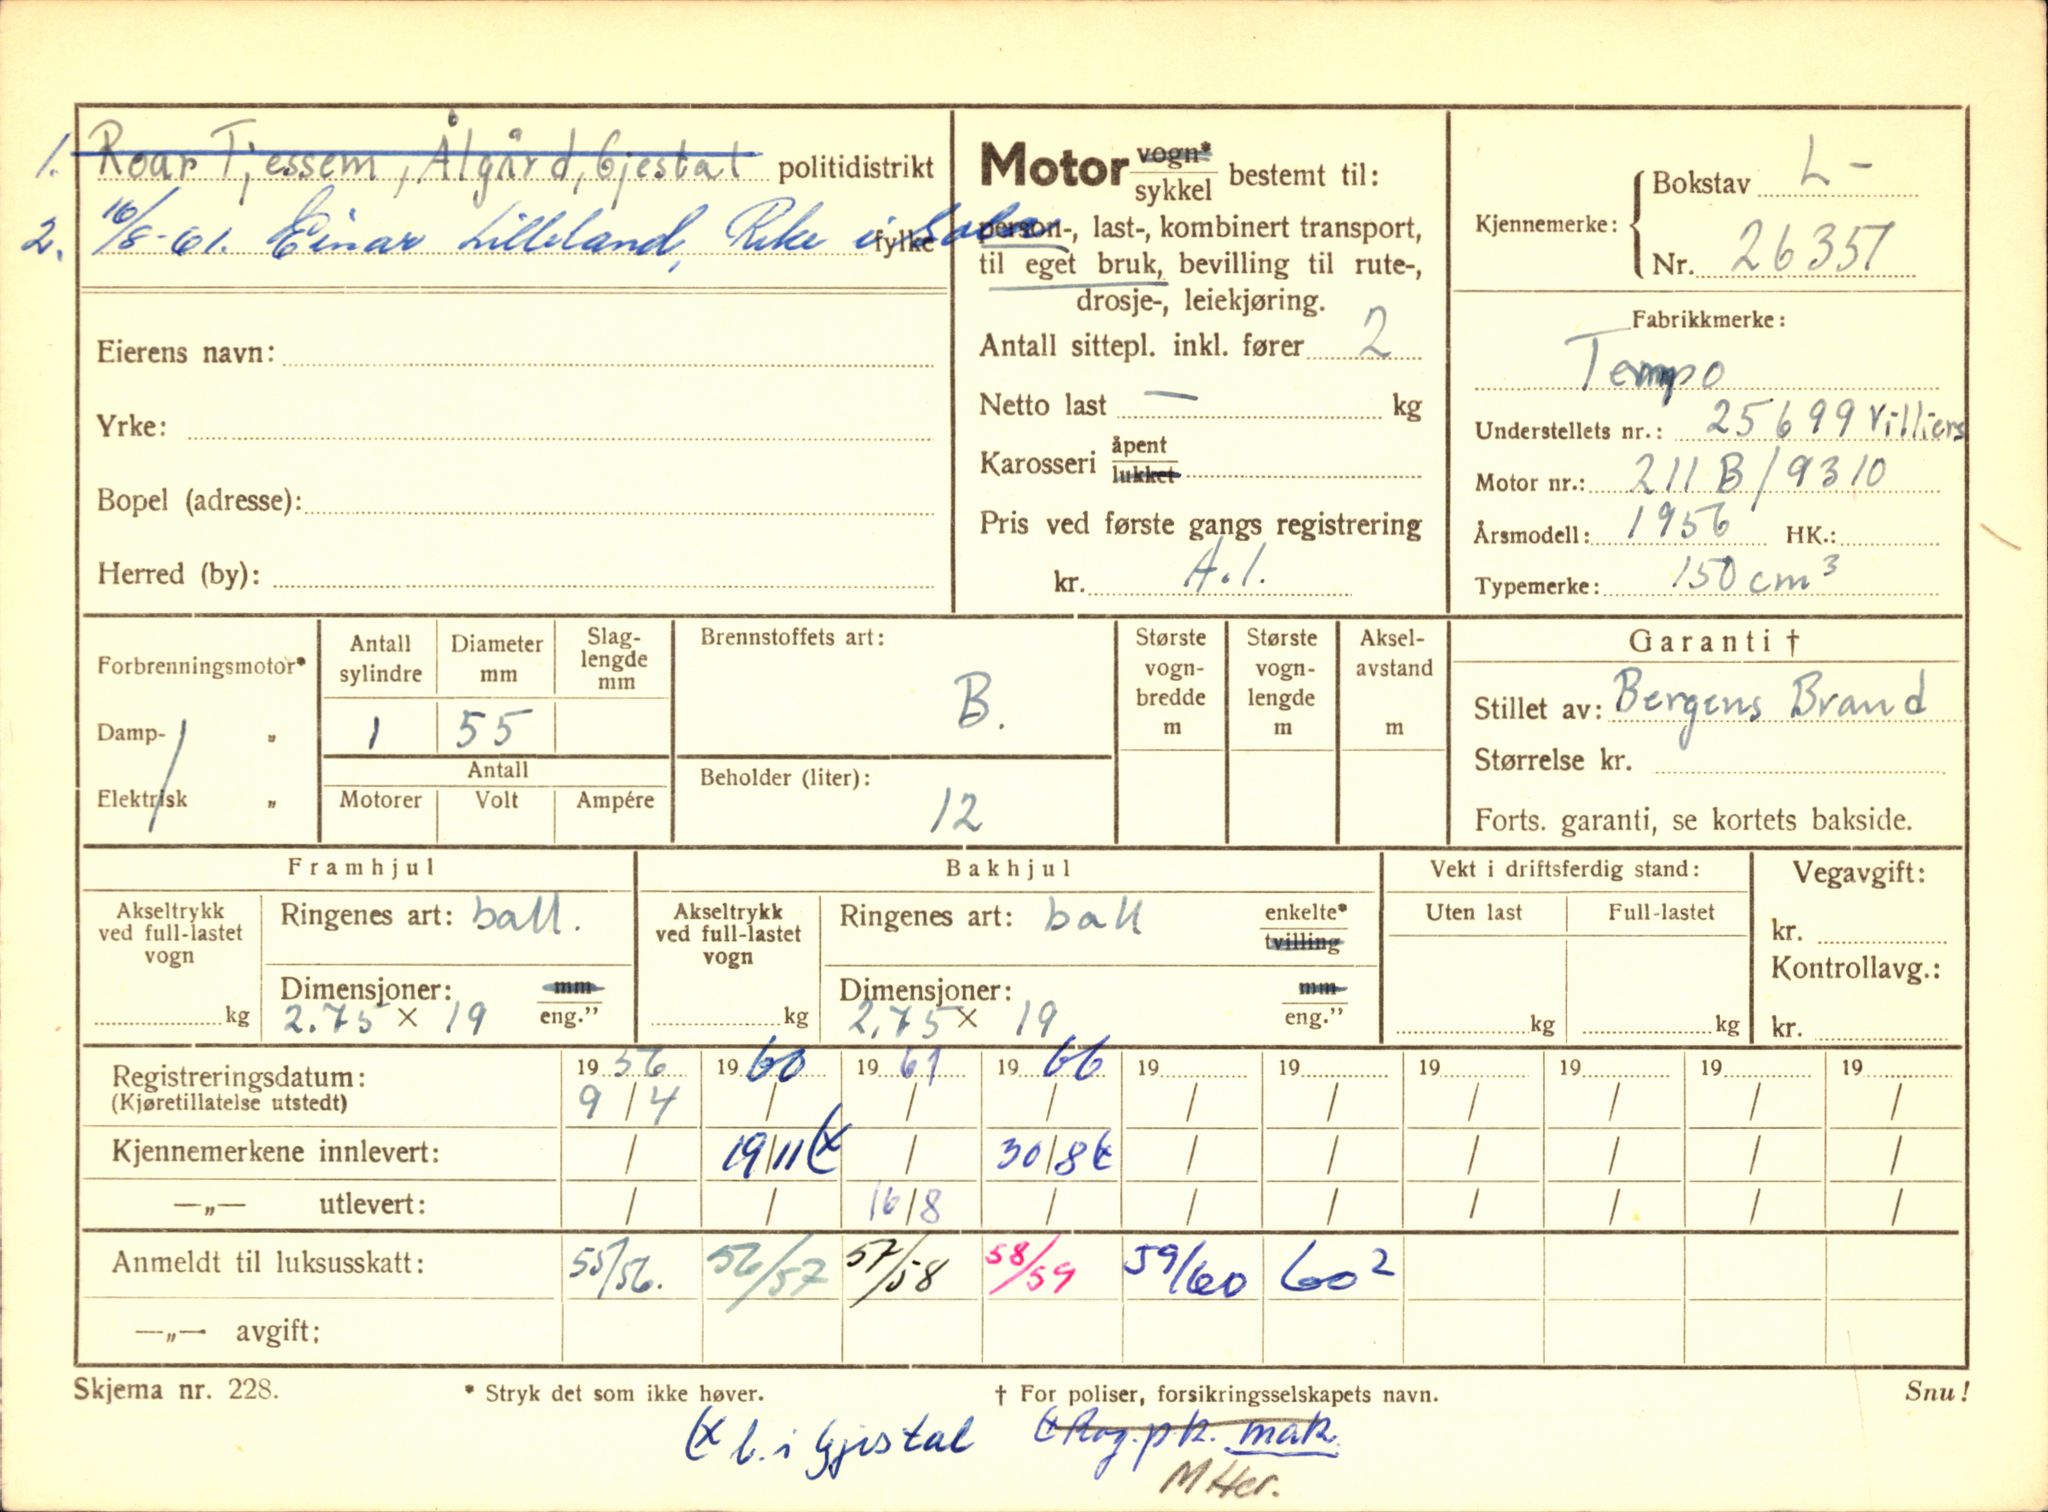 1. Roar Tjessem, Ålgård, Gjestal politidistrikt
2. 16/8-61. Einar Lilleland, Reke i Sola fylke
Eierens navn:
Yrke:
Bopel (adresse):
Herred (by):
Motor vogn* sykkel bestemt til:
person-, last-, kombinert transport,
til eget bruk, bevilling til rute-,
drosje-, leiekjøring.
Antall sittepl. inkl. fører 2
Netto last — kg
Karosseri åpent lukket
Pris ved første gangs registrering
kr. A.l.
Kjennemerke: Bokstav L-
Nr. 26357
Fabrikkmerke:
Tempo
Understellets nr.: 25699 Villiers
Motor nr.: 211 B/9310
Årsmodell: 1956 HK.:
Typemerke: 150 cm³
Forbrenningsmotor*
Damp- „
Elektrisk „
Antall sylindre
1
Diameter mm
55
Slag-
lengde
mm
Antall
Motorer Volt Ampére
Brennstoffets art:
B.
Beholder (liter):
12
Største
vogn-
bredde
m
Største
vogn-
lengde
m
Aksel-
avstand
m
Garanti †
Stillet av: Bergens Brand
Størrelse kr.
Forts. garanti, se kortets bakside.
Framhjul
Akseltrykk
ved full-lastet
vogn
kg
Ringenes art: ball.
Dimensjoner: mm
2.75 × 19 eng.”
Bakhjul
Akseltrykk
ved full-lastet
vogn
kg
Ringenes art: ball enkelte* tvilling
Dimensjoner: mm
2.75 × 19 eng.”
Vekt i driftsferdig stand:
Uten last Full-lastet
kg kg
Vegavgift:
kr.
Kontrollavg.:
kr.
Registreringsdatum: 1956 1960 1961 1966 19 19 19 19 19 19
(Kjøretillatelse utstedt) 9/4 / / / / / / / / /
Kjennemerkene innlevert: / 19/11 (x / 30/8 (x / / / / / /
—„— utlevert: / / 16/8 / / / / / / /
Anmeldt til luksusskatt: 55/56. 56/57 57/58 58/59 59/60 60²
—„— avgift:
Skjema nr. 228. * Stryk det som ikke høver. † For poliser, forsikringsselskapets navn. Snu!
(x l. i Gjestal (x Rog. p.k. mak.